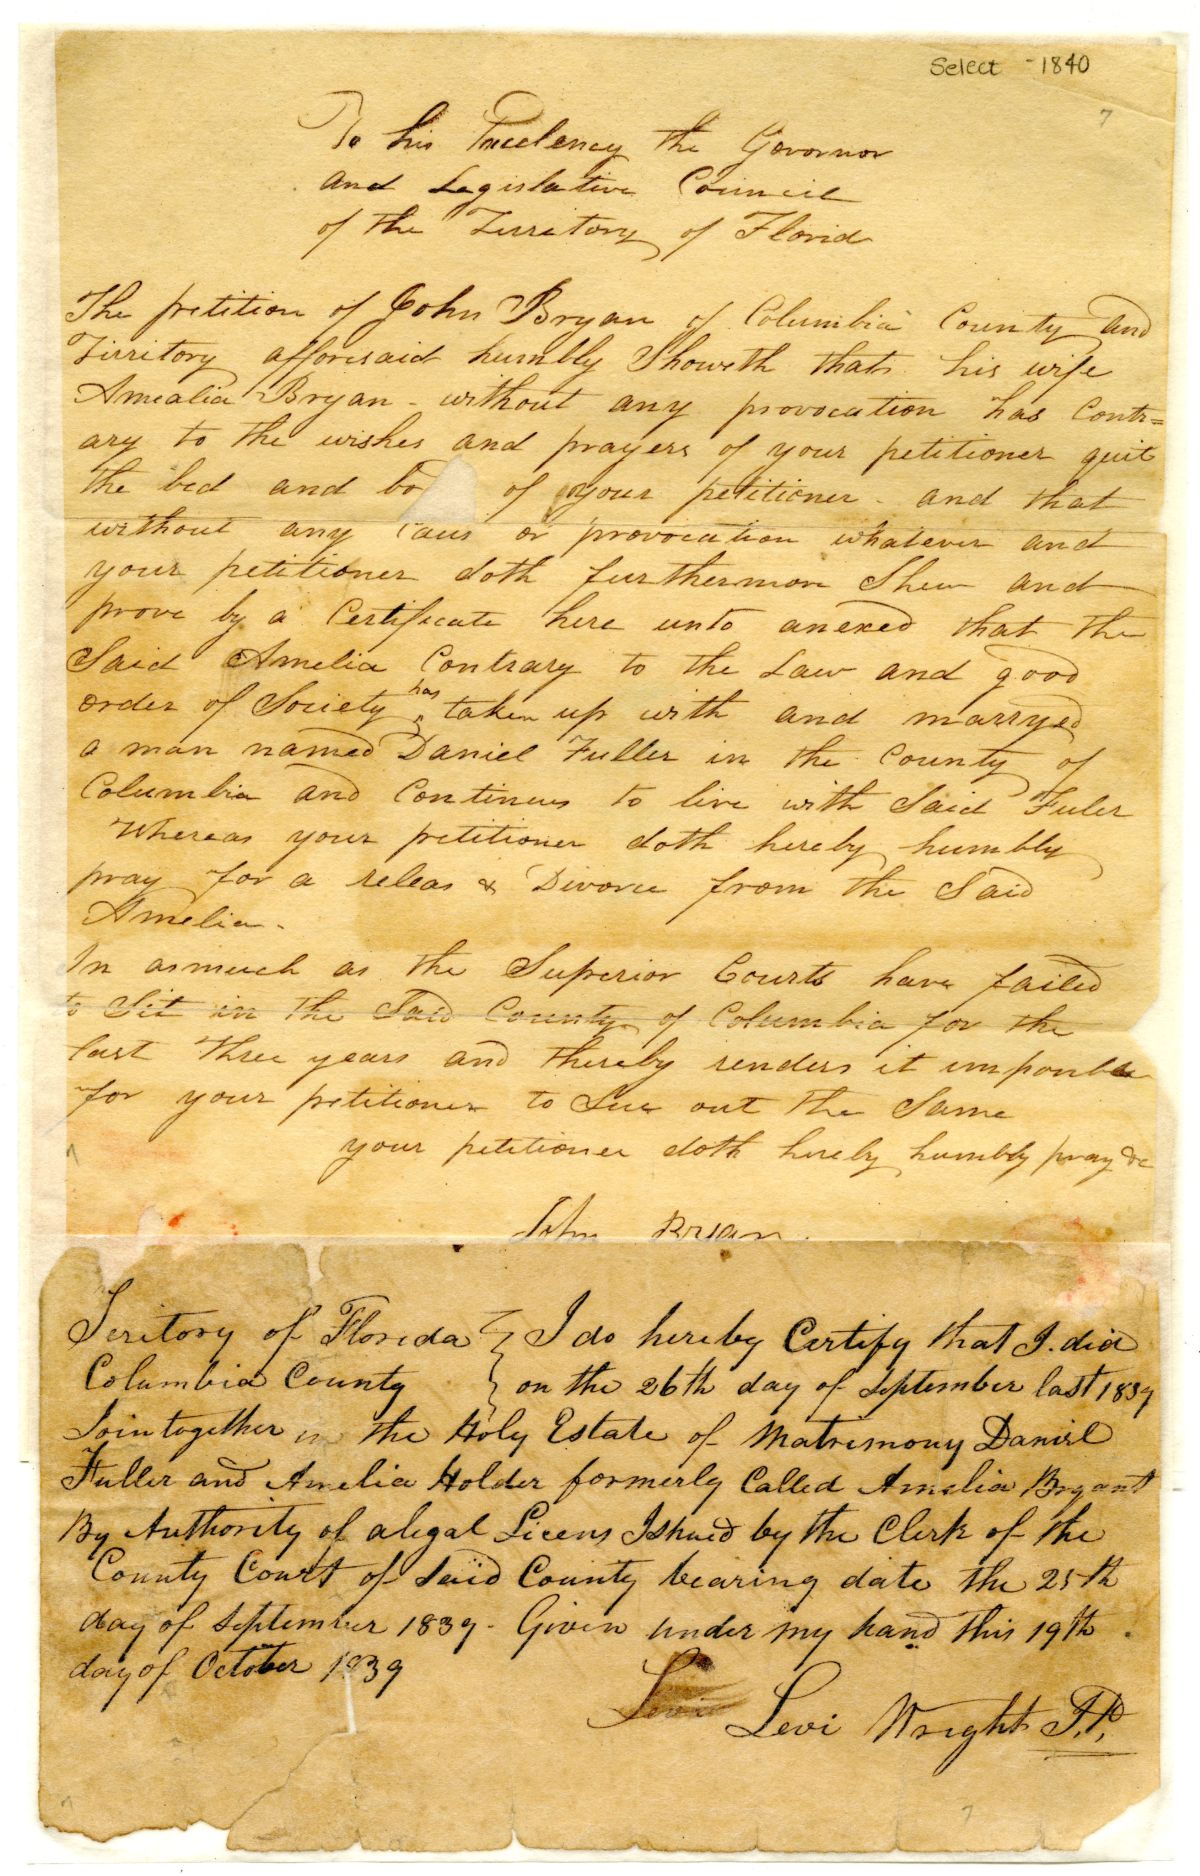 Select - 1840
7
To his Excelency the Governor
and Legislative Council
of the Territory of Florid
The petition of John Bryan of Columbia County and
Territory afforesaid humbly Showeth that his wife
Amealia Bryan - without any provocation has Contr=
ary to the wishes and prayers of your petitioner quit
the bed and bo of your petitioner - and that
without any Caus or provocation whatever and
your petitioner doth furthermore Shew and
prove by a Certificate here unto anexed that the
Said Amelia Contrary to the Law and good
order of Society has taken up with and marryed
a man named Daniel Fuller in the County of
Columbia and Continues to live with Said Fuler
Whereas your petitioner doth hereby humbly
pray for a releas & Divorce from the Said
Amelia -
In asmuch as the Superior Courts have failed
to Sit in the Said County of Columbia for the
last three years and thereby renders it
for your petitioner to Sue out the Same
your petitioner doth hereby humbly pray &c
John Bryan
Teritory of Florida } I do hereby Certify that I. did
Columbia County } on the 26th day of September last 1839
Join together in the Holy Estate of Matrimony Daniel
Fuller and Amelia Holder formerly Called Amelia Bryant
By Authority of a legal Licens Ishued by the Clerk of the
County Court of Said County bearing date the 25th
day of September 1839 - Given under my hand this 19th
day of October 1839
Levi Levi Wright J.P.
7